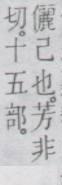 儷己也。芳非
切。十五部。